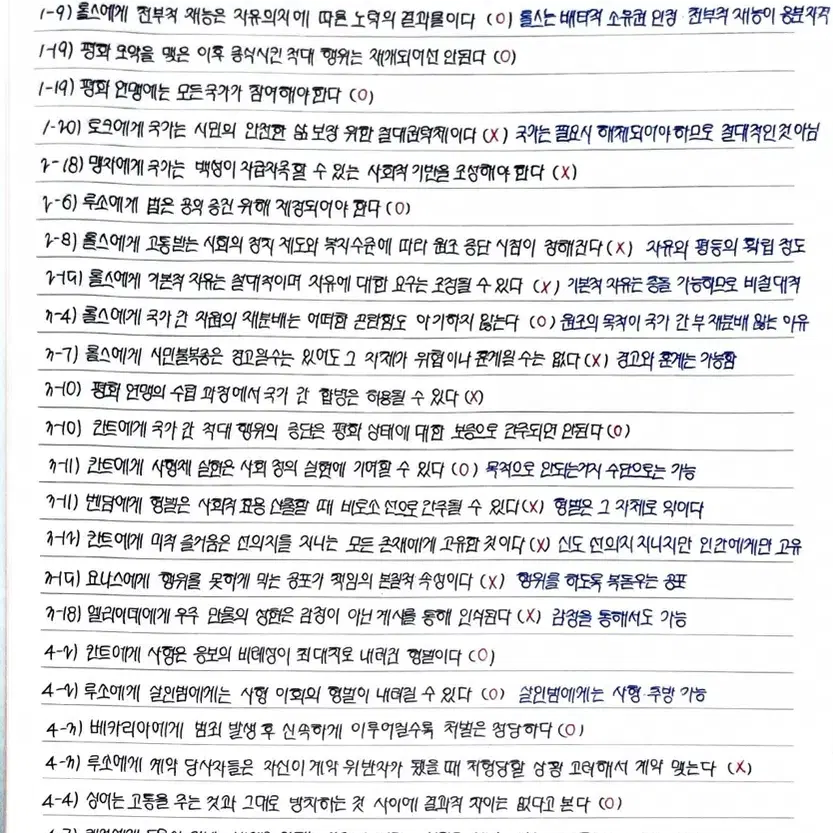 1-9) 롤스에게 천부적 재능은 자유의지에 따른 노력의 결과물이다 (O) 롤스는 배타적 소유권 인정. 천부적 재능이 응분자격
1-19) 평화 조약을 맺은 이후 종식시킨 적대 행위는 재개되어선 안된다 (O)
1-19) 평화 연맹에는 모든 국가가 참여해야 한다 (O)
1-20) 로크에게 국가는 시민의 안전한 삶 보장 위한 절대권력체이다 (X) 국가는 필요시 해체되어야 하므로 절대적인 것 아님
2-18) 맹자에게 국가는 백성이 자급자족할 수 있는 사회적 기반을 조성해야 한다 (X)
2-6) 루소에게 법은 공익 증진 위해 제정되어야 한다 (O)
2-8) 롤스에게 고통받는 사회의 정치 제도와 복지수준에 따라 원조 중단 시점이 정해진다 (X) 자유와 평등의 확립 정도
2-19) 롤스에게 기본적 자유는 절대적이며 자유에 대한 요구는 조정될 수 있다 (X) 기본적 자유는 충돌 가능하므로 비절대적
3-4) 롤스에게 국가 간 자원의 재분배는 어떠한 곤란함도 야기하지 않는다 (O) 원조의 목적이 국가 간 부 재분배 않는 이유
3-7) 롤스에게 시민불복종은 경고일수는 있어도 그 자체가 위협이나 훈계일 수는 없다 (X) 경고와 훈계는 가능함
3-10) 평화 연맹의 수립 과정에서 국가 간 합병은 허용될 수 있다 (X)
3-10) 칸트에게 국가 간 적대 행위의 중단은 평화 상태에 대한 보증으로 간주되면 안된다 (O)
3-11) 칸트에게 사형제 실현은 사회 정의 실현에 기여할 수 있다 (O) 목적으로 안되는거지 수단으로는 가능
3-11) 벤담에게 형벌은 사회적 효용 산출할 때 비로소 선으로 간주될 수 있다 (X) 형벌은 그 자체로 악이다
3-12) 칸트에게 미적 즐거움은 선의지를 지니는 모든 존재에게 고유한 것이다 (X) 신도 선의지 지니지만 인간에게만 고유
3-15) 요나스에게 행위를 못하게 막는 공포가 책임의 본질적 속성이다 (X) 행위를 하도록 북돋우는 공포
3-18) 엘리아데에게 우주 만물의 성현은 감정이 아닌 계시를 통해 인식된다 (X) 감정을 통해서도 가능
4-2) 칸트에게 사형은 응보의 비례성이 최대치로 내려진 형벌이다 (O)
4-2) 루소에게 살인범에게는 사형 이외의 형벌이 내려질 수 있다 (O) 살인범에게는 사형·추방 가능
4-3) 베카리아에게 범죄 발생 후 신속하게 이루어질수록 처벌은 정당하다 (O)
4-3) 루소에게 계약 당사자들은 자신이 계약 위반자가 됐을 때 처형당할 상황 고려해서 계약 맺는다 (X)
4-4) 싱어는 고통을 주는 것과 그대로 방치하는 것 사이에 결과적 차이는 없다고 본다 (O)